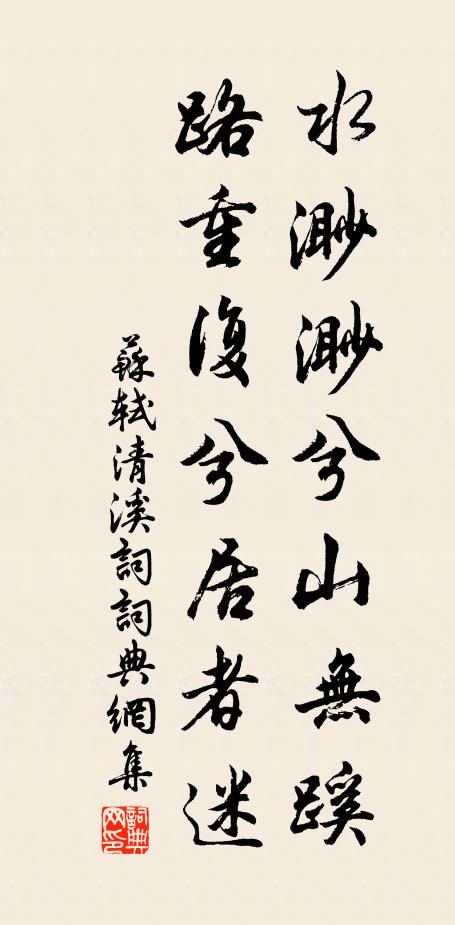 水渺渺兮山無蹊
路重復兮居者迷
蘇軾清溪詞詞典網集
詞典網印